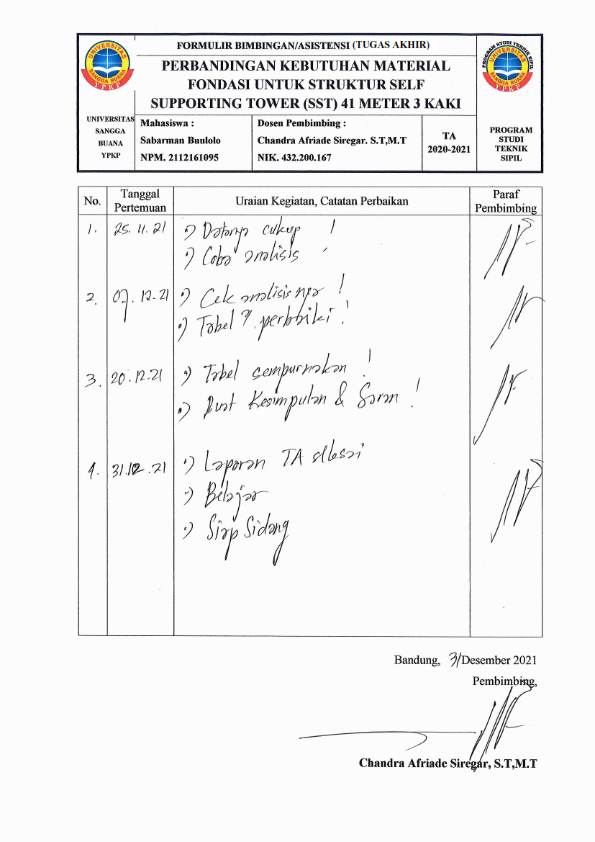 FORMULIR BIMBINGAN/ASISTENSI (TUGAS AKHIR)
PERBANDINGAN KEBUTUHAN MATERIAL
FONDASI UNTUK STRUKTUR SELF
SUPPORTING TOWER (SST) 41 METER 3 KAKI
UNIVERSITAS
SANGGA BUANA
YPKP
UNIVERSITAS
SANGGA
BUANA
YPKP
Mahasiswa :
Sabarman Buulolo
NPM. 2112161095
Dosen Pembimbing :
Chandra Afriade Siregar. S.T,M.T
NIK. 432.200.167
TA
2020-2021
PROGRAM STUDI TEKNIK SIPIL
PROGRAM
STUDI
TEKNIK
SIPIL
No. Tanggal Pertemuan Uraian Kegiatan, Catatan Perbaikan Paraf Pembimbing
1. 25.11.21 Datanya cukup !
Coba analisis
2. 07.12.21 Cek analisis nya !
Tabel 2 perbaiki !
3. 20.12.21 Tabel sempurnakan !
Buat Kesimpulan & Saran !
4. 31.12.21 Laporan TA selesai
Belajar
Siap Sidang
Bandung, 31 Desember 2021
Pembimbing,
Chandra Afriade Siregar, S.T,M.T